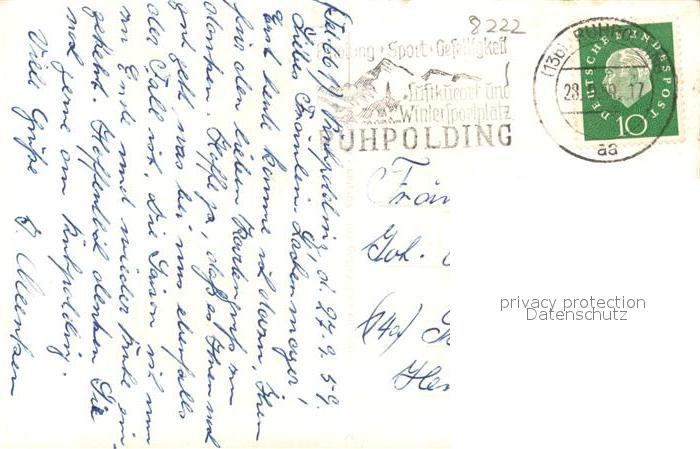 8222
Erholung · Sport · Geselligkeit
Luftkurort und
Wintersportplatz
RUHPOLDING
(13b) RUHPOLDING
28.9.59.-17
aa
DEUTSCHE BUNDESPOST
10
Ruhpolding, d. 27.9.59.
Liebes Fräulein Lackenmayer!
Erst heute komme ich dazu, Ihnen
für den lieben Kartengruß zu
danken. Hoffe ja, daß es Ihnen noch
gut geht was bei uns ebenfalls
der Fall ist. Die Saison ist nun
zu Ende und wieder Ruhe ein-
gekehrt. Hoffentlich denken Sie
noch gerne an Ruhpolding.
Viele Grüße
Joh.
(14a)
privacy protection
Datenschutz